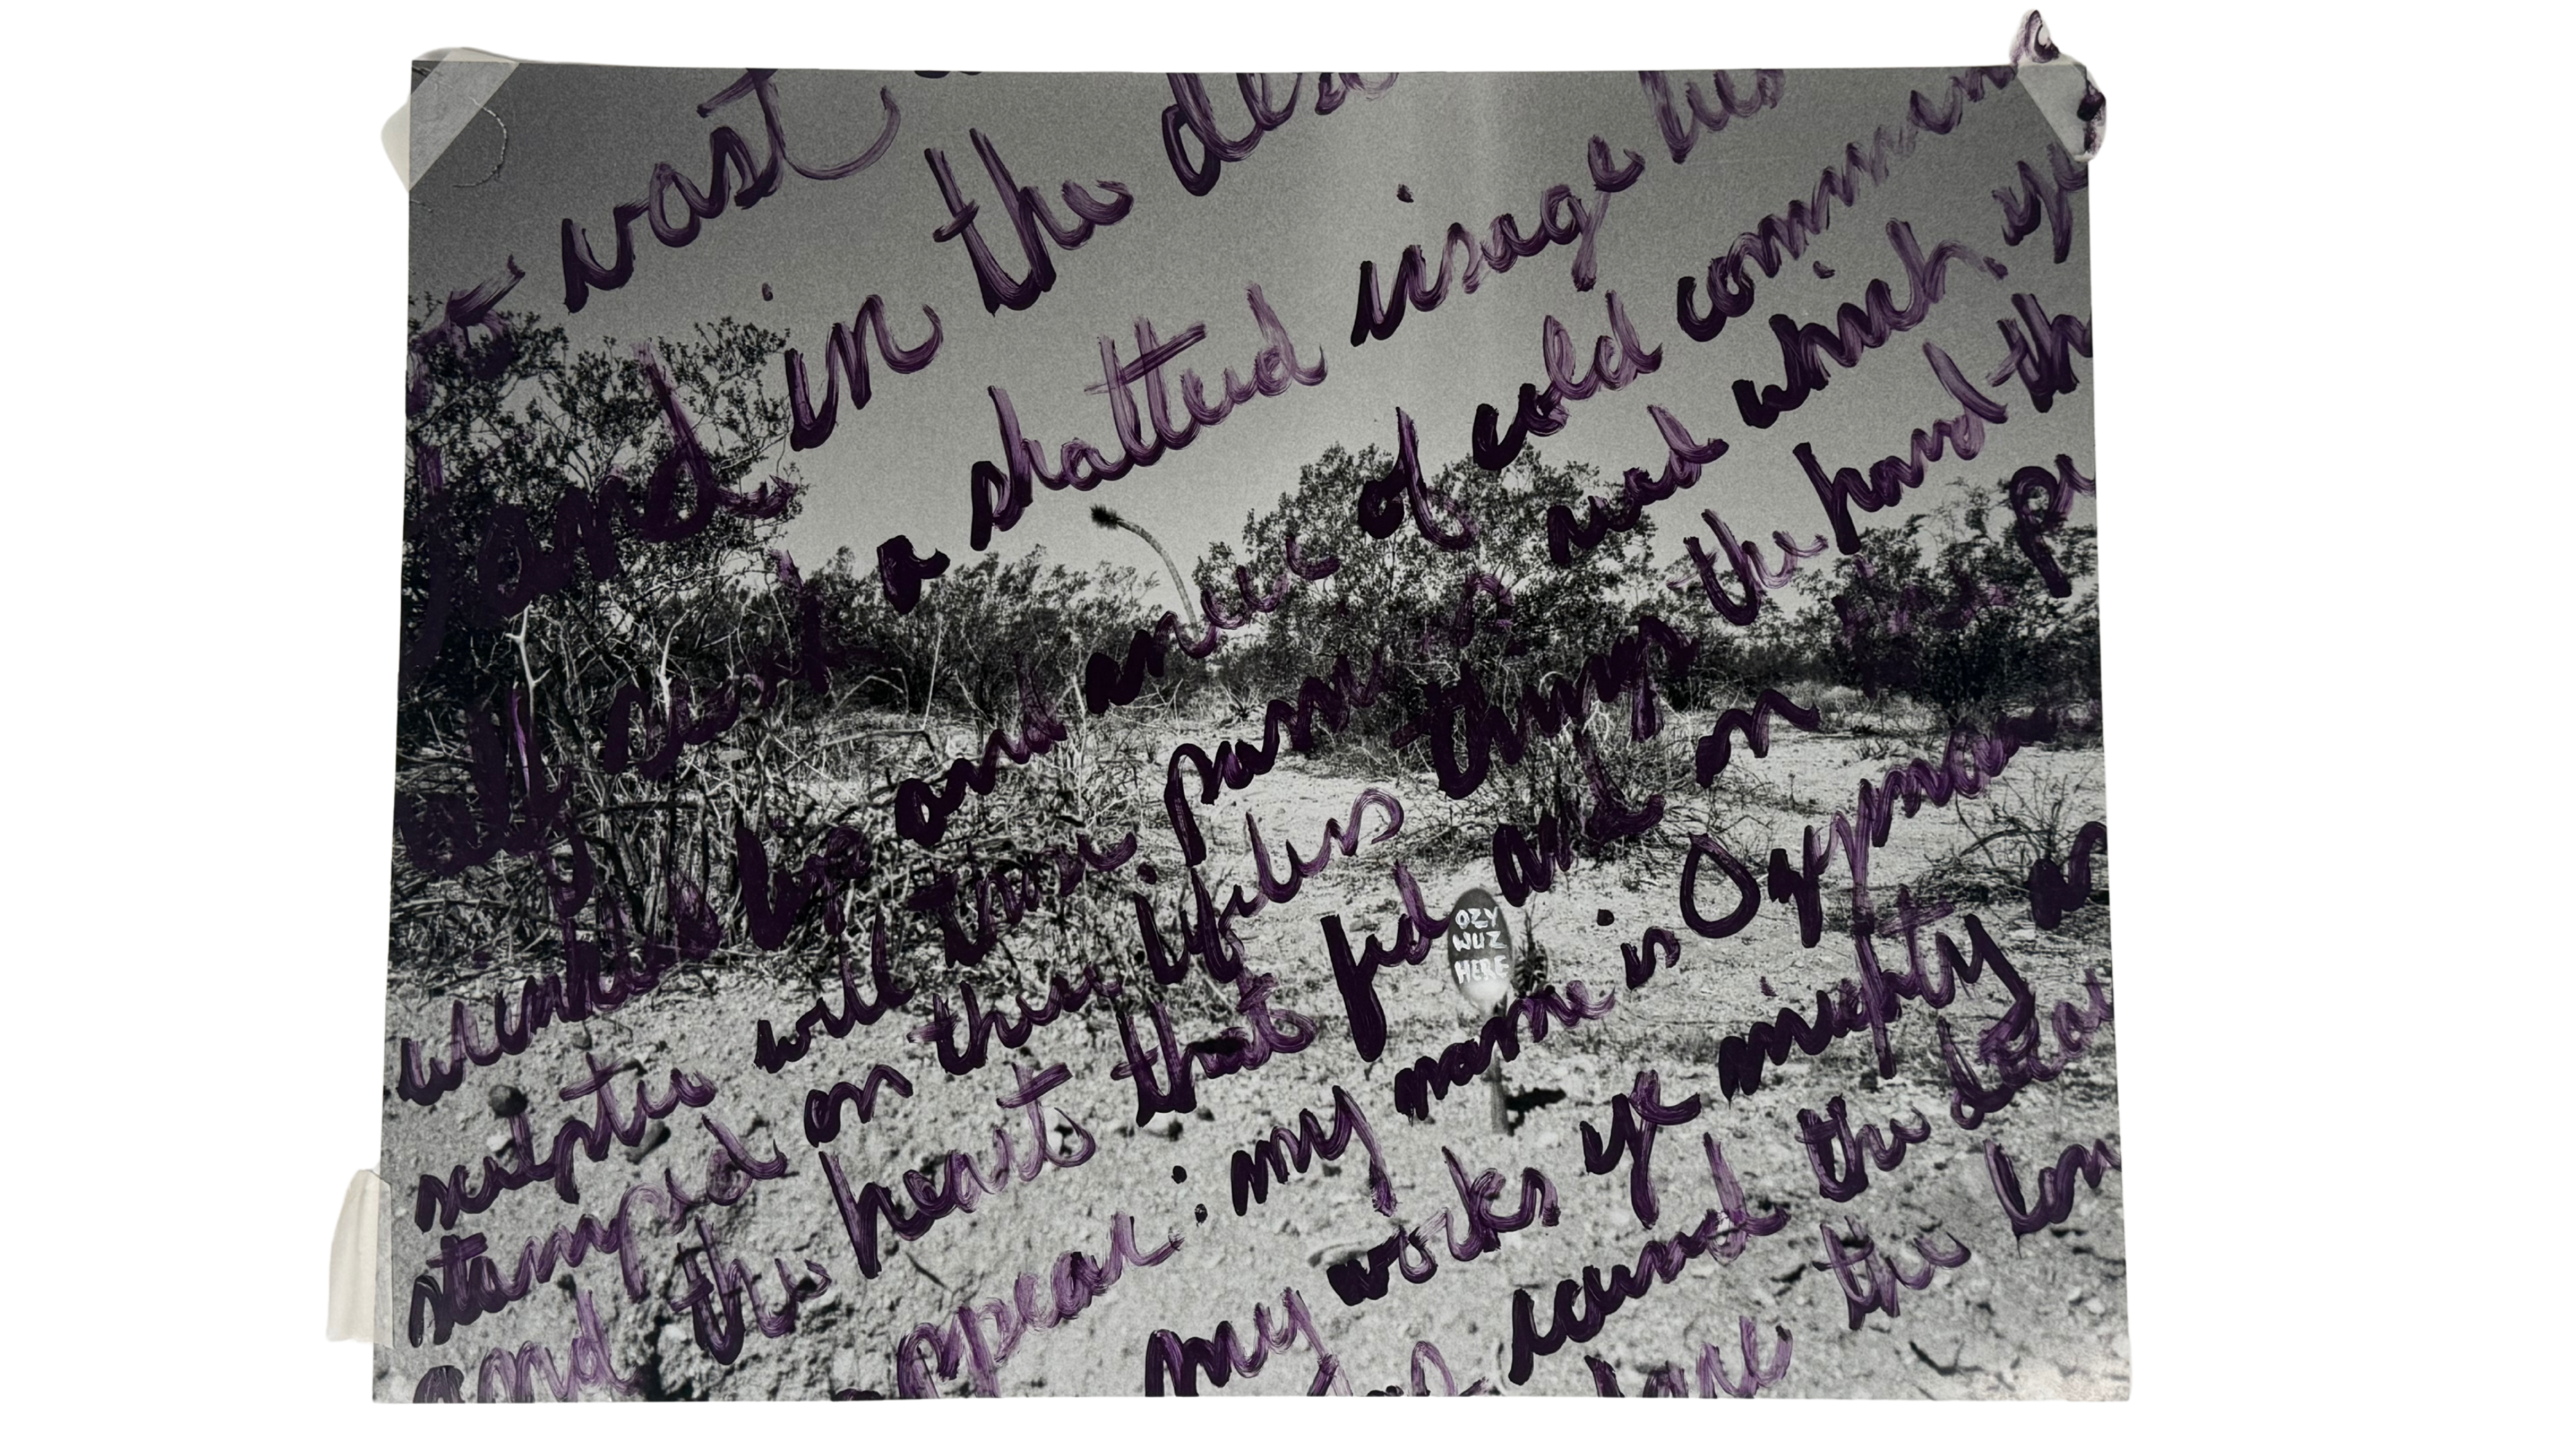 vast
stand in the des
a shattered visage lies
wrinkled lip and sneer of cold comman
sculptor will passions read which ye
stamped on these lifeless things the hand th
and the hearts that fed and on
ppear: my name is Ozyman
my works ye mighty an
round the decay
the lon
OZY
WUZ
HERE